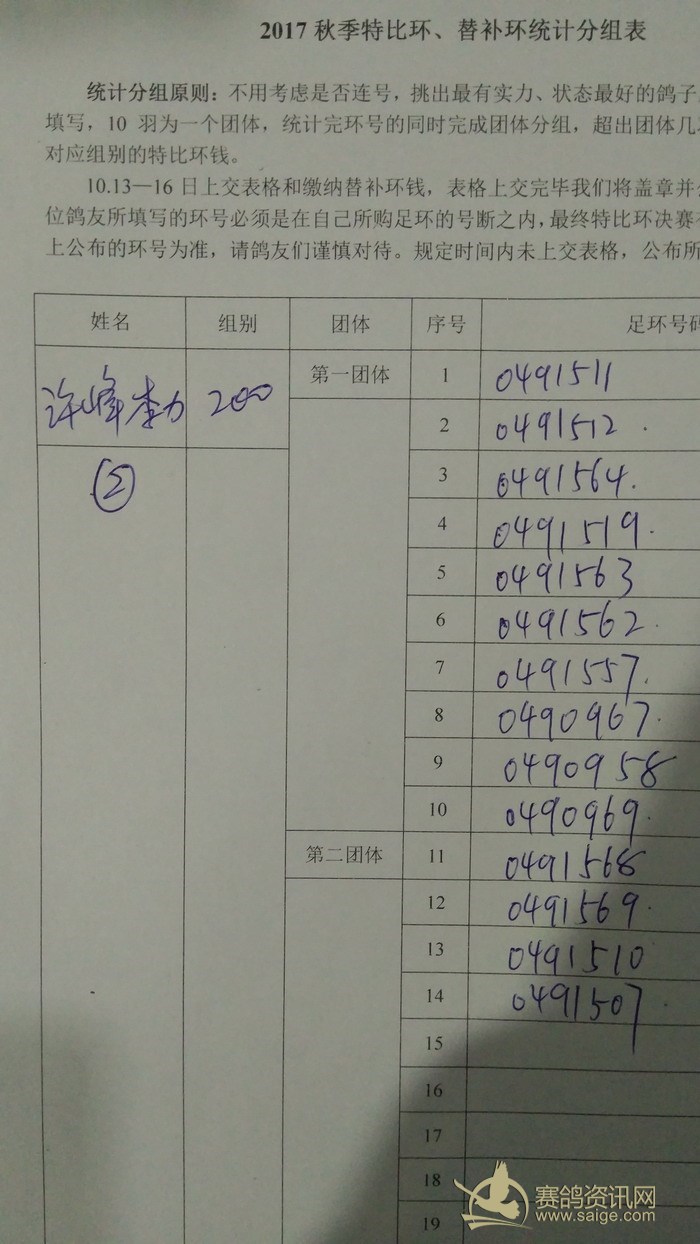 2017 秋季特比环、替补环统计分组表
统计分组原则：不用考虑是否连号，挑出最有实力、状态最好的鸽子
填写，10 羽为一个团体，统计完环号的同时完成团体分组，超出团体几
对应组别的特比环钱。
10.13—16 日上交表格和缴纳替补环钱，表格上交完毕我们将盖章并
位鸽友所填写的环号必须是在自己所购足环的号断之内，最终特比环决赛
上公布的环号为准，请鸽友们谨慎对待。规定时间内未上交表格，公布所
姓名 组别 团体 序号 足环号码
许峰李力 200 第一团体 1 0491511
2 0491512
② 3 0491564
4 0491519
5 0491563
6 0491562
7 0491557
8 0490967
9 0490958
10 0490969
第二团体 11 0491568
12 0491569
13 0491510
14 0491507
15
16
17
18
19
赛鸽资讯网
www.saige.com